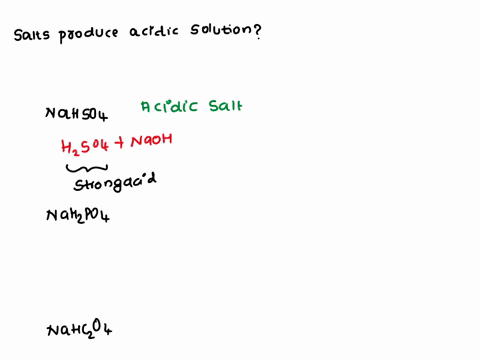 Salts produce acidic solution?
NaHSO4 Acidic Salt
H2SO4 + NaOH
Strong acid
NaH2PO4
NaHC2O4